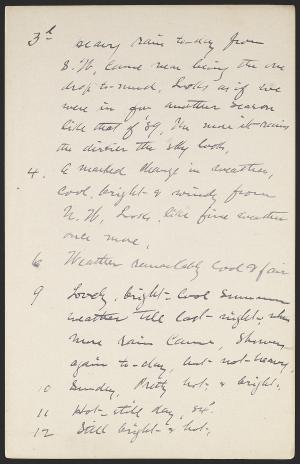 3d heavy rain to-day from
S. W, came near being the one
drop to-much, Looks as if we
were in for another season
like that of '89, The more it rains
the dirtier the sky looks,
4. A marked change in weather,
cool, bright & windy from
N. W, Looks like fine weather
once more,
6 Weather remarkably cool & fair
9 Lovely, bright cool summer
weather till last night, when
more rain came, Showers
again to-day, but not heavy,
10 Sunday, Pretty hot & bright,
11 Hot still day, 84°
12 Still bright & hot,